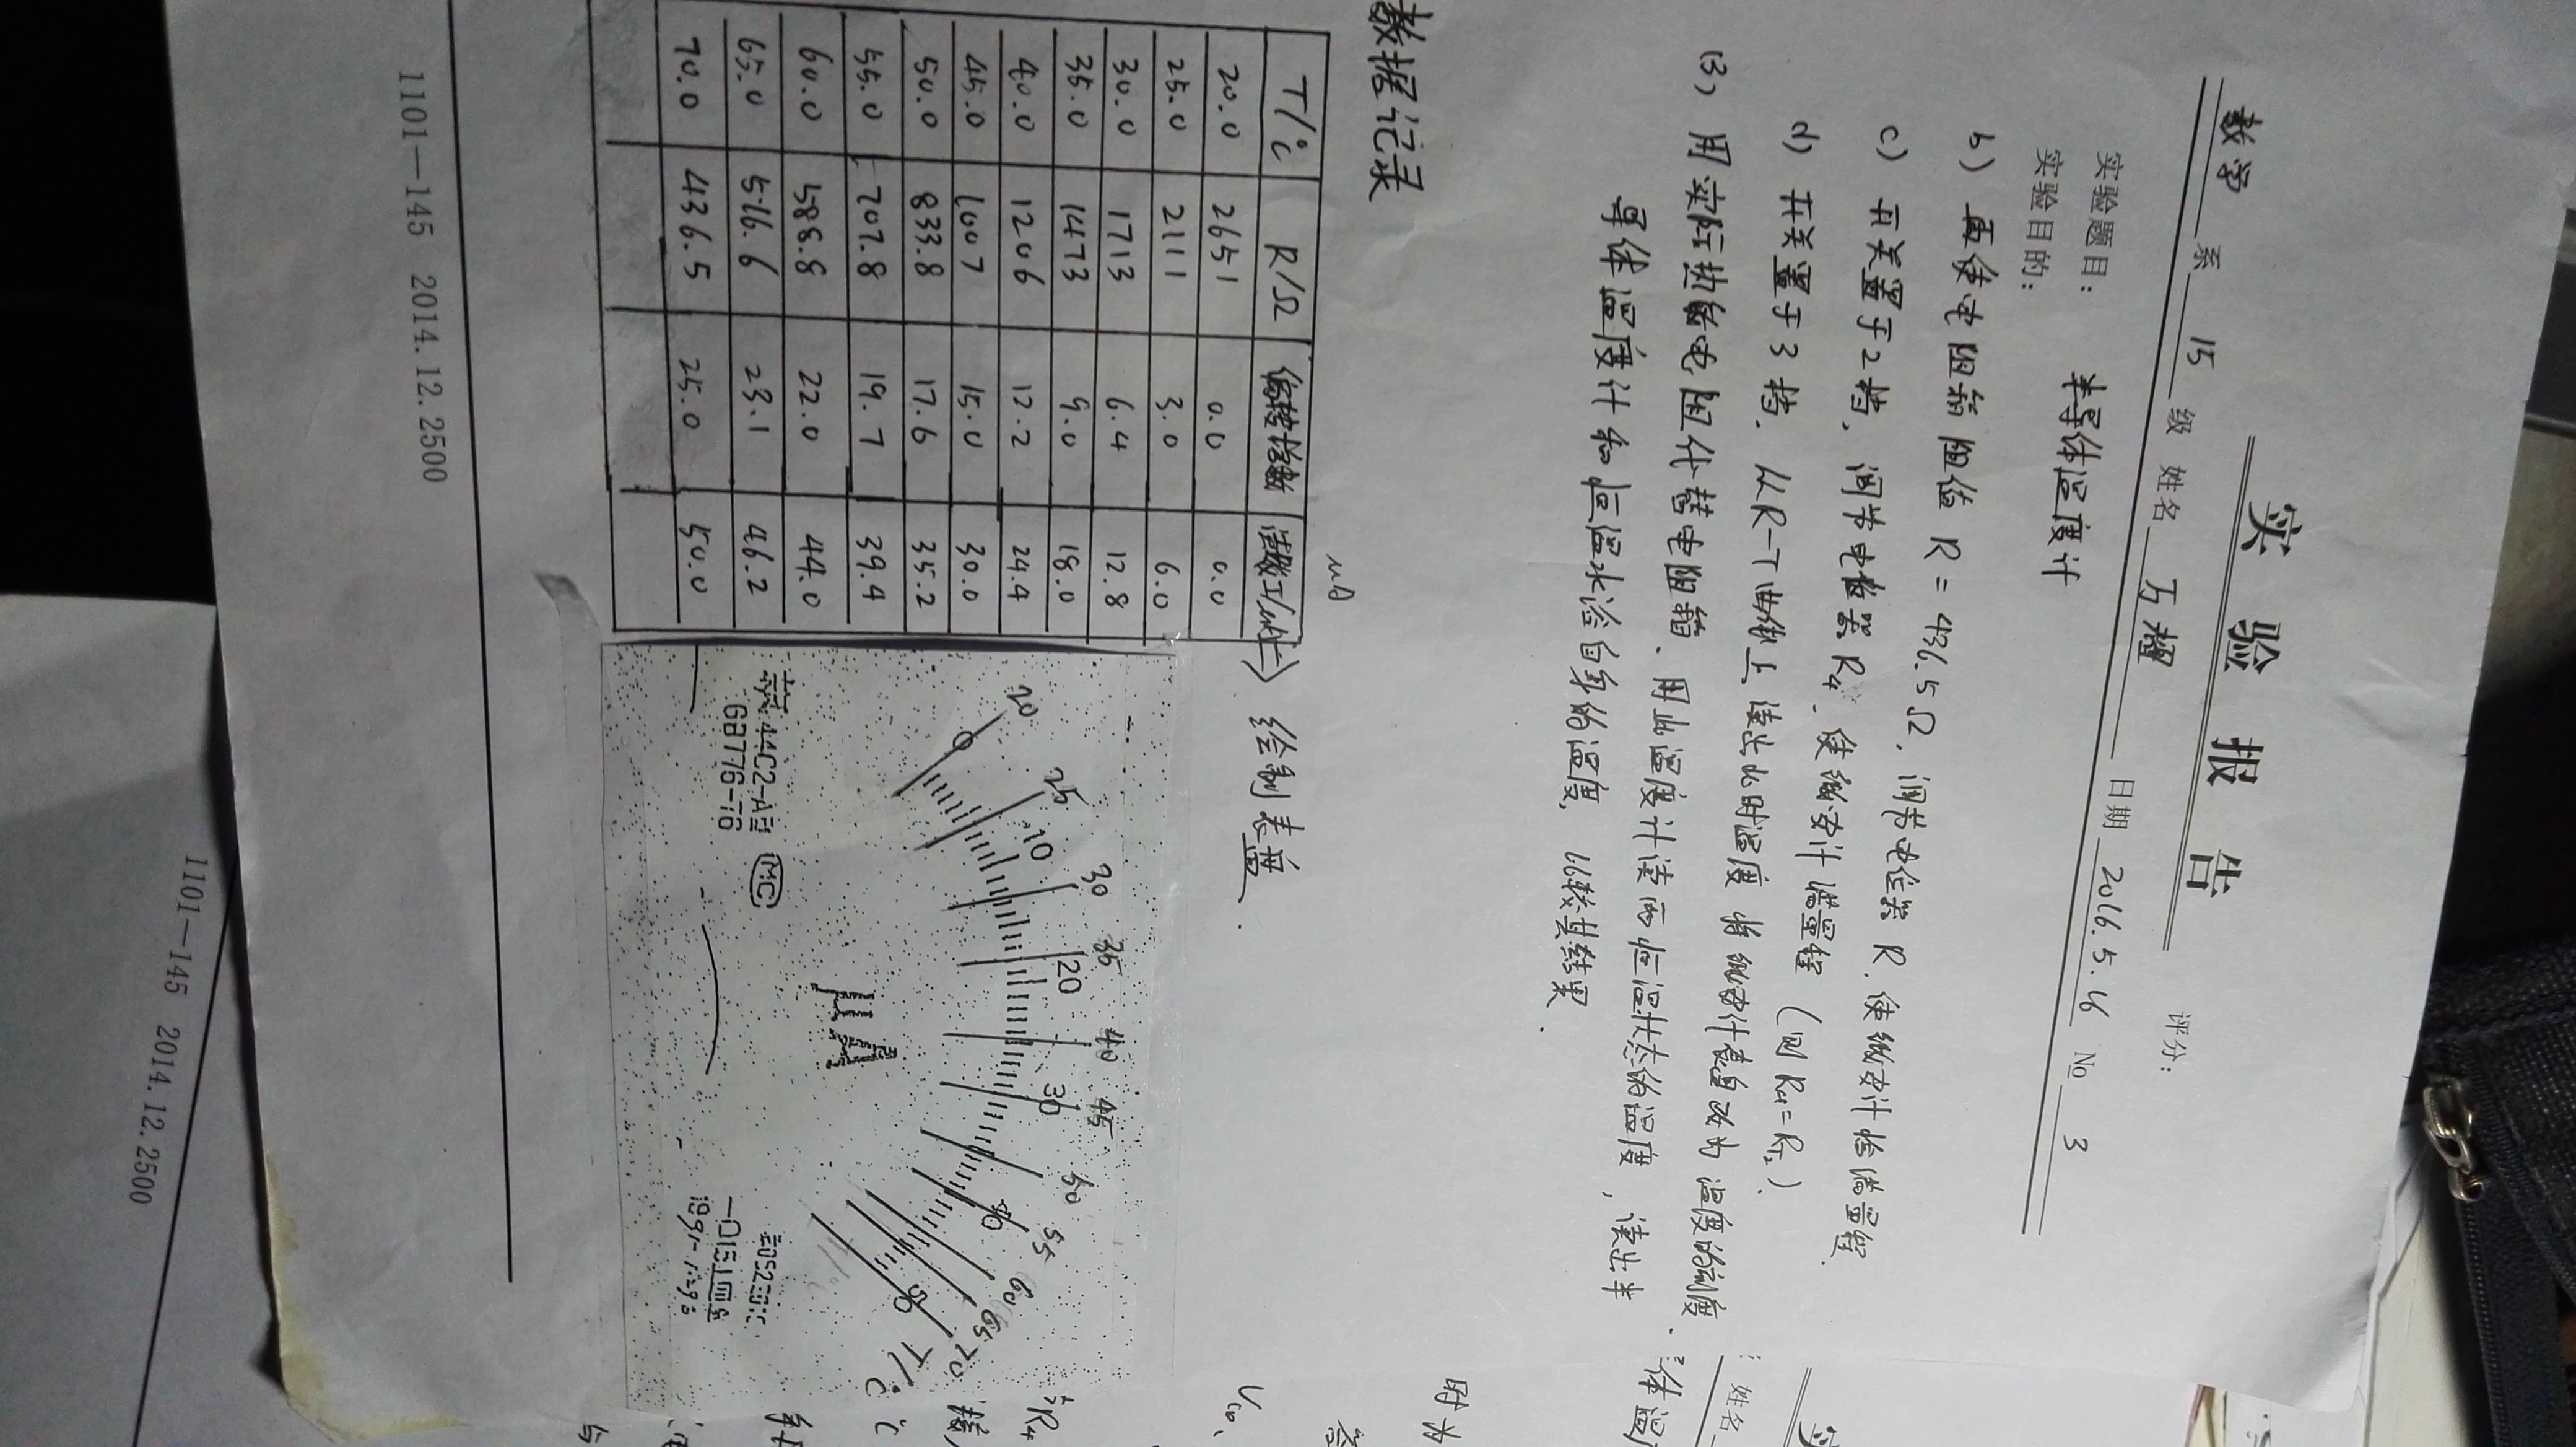 实验报告
评分:
数学 系 15 级 姓名 万耀 日期 2016.5.16 No 3
实验题目: 半导体温度计
实验目的:
b) 再使电阻箱阻值 R = 436.5Ω, 调节电位器 R, 使微安计恰满量程
c) 开关置于2档, 调节电位器 R4, 使微安计满量程 (则 R4=RT2)
d) 开关置于3档, 从R-T曲线上读出此时温度 将微安计表盘改为温度的刻度.
(3) 用实际热敏电阻代替电阻箱, 用此温度计读两恒温状态的温度, 读出半
导体温度计和恒温水浴自身的温度, 比较其结果.
数据记录
μA
T/℃ R/Ω 偏转格数 读数I/μA
20.0 2651 0.0 0.0
25.0 2111 3.0 6.0
30.0 1713 6.4 12.8
35.0 1473 9.0 18.0
40.0 1206 12.2 24.4
45.0 1007 15.0 30.0
50.0 833.8 17.6 35.2
55.0 707.8 19.7 39.4
60.0 588.8 22.0 44.0
65.0 516.6 23.1 46.2
70.0 436.5 25.0 50.0
绘制表盘.
20 25 30 35 40 45 50 55 60 65 70 T/℃
0 10 20 30 40 50
μA
44C2-A型 MC
GB776-76
1101—145 2014.12.2500
1101—145 2014.12.2500
姓名
附为